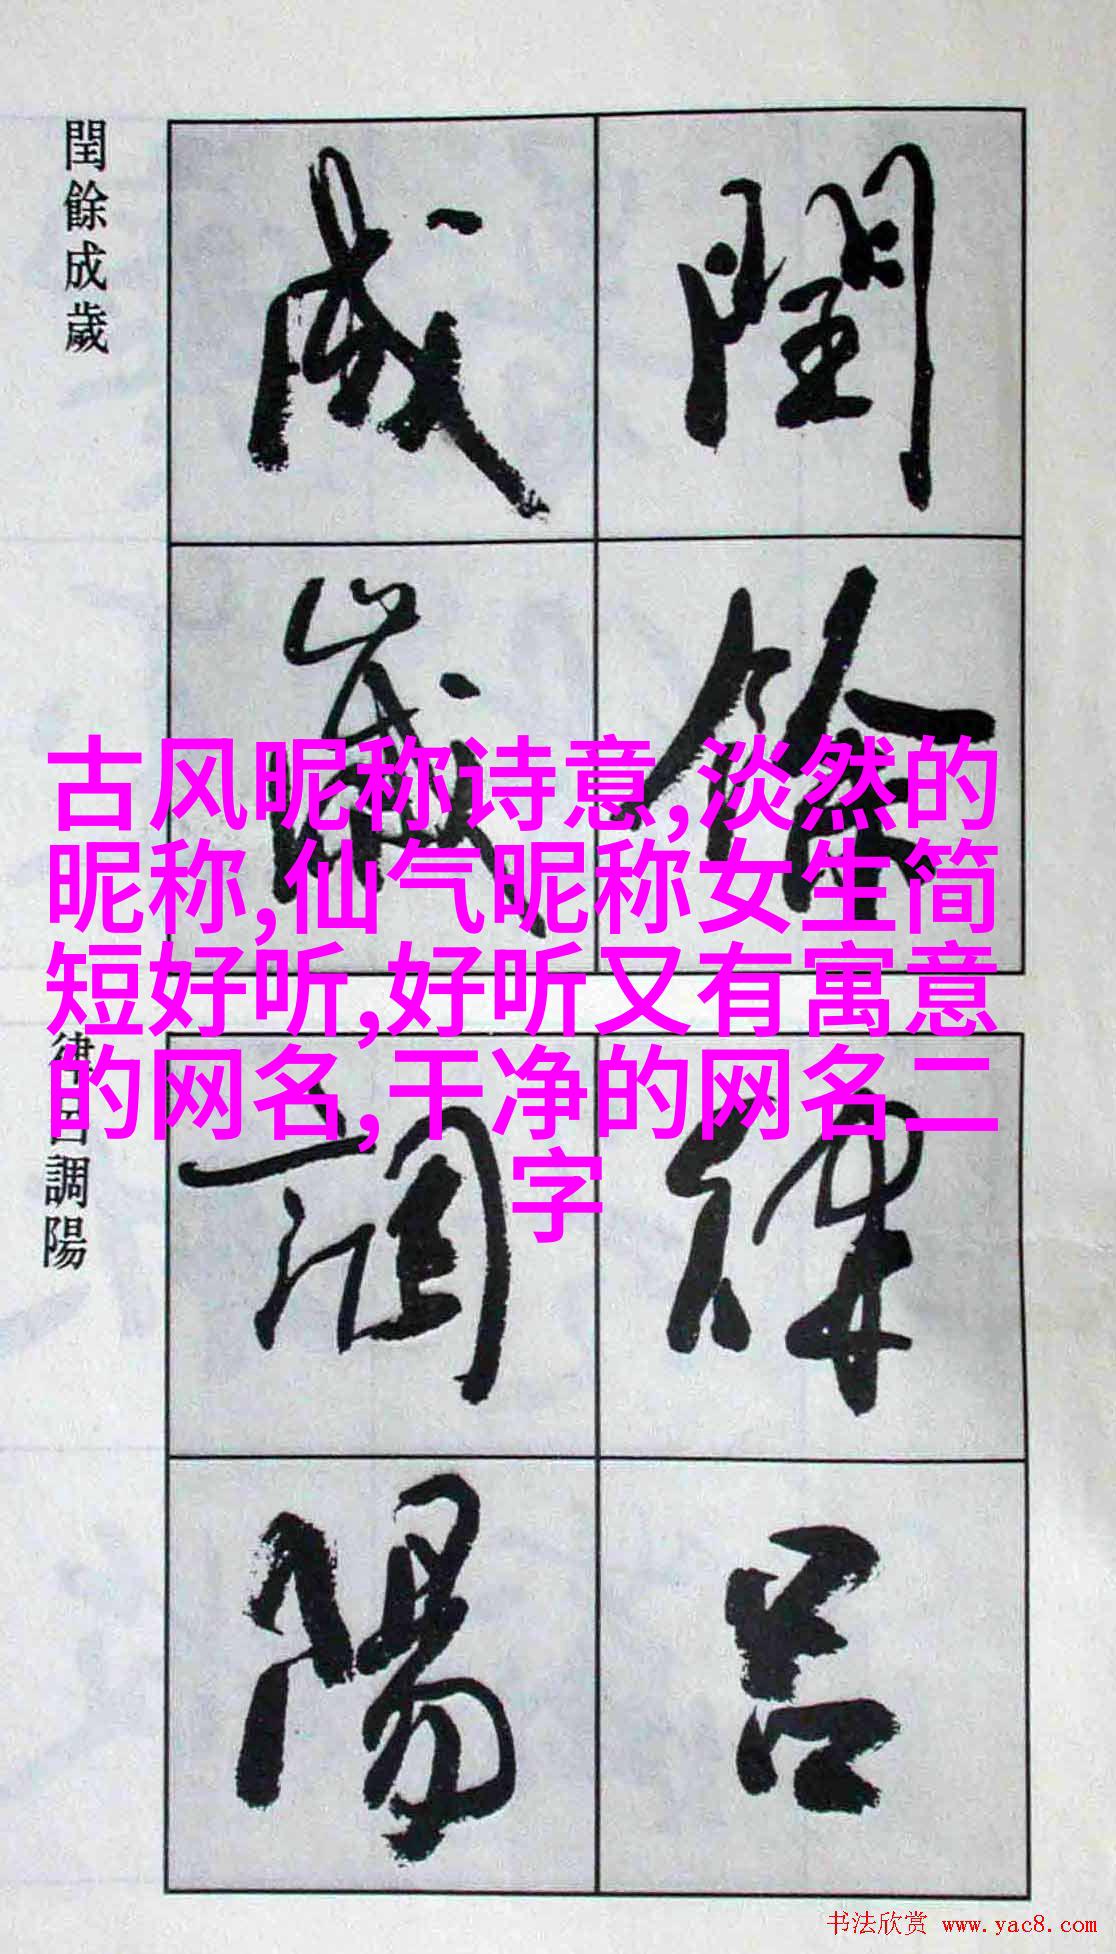 閏餘成歲
閏餘
成歲
古风昵称诗意,淡然的
昵称,仙气昵称女生简
短好听,好听又有寓意
的网名,干净的网名二
字
律呂調陽
律呂
調陽
书法欣赏 www.yac8.com